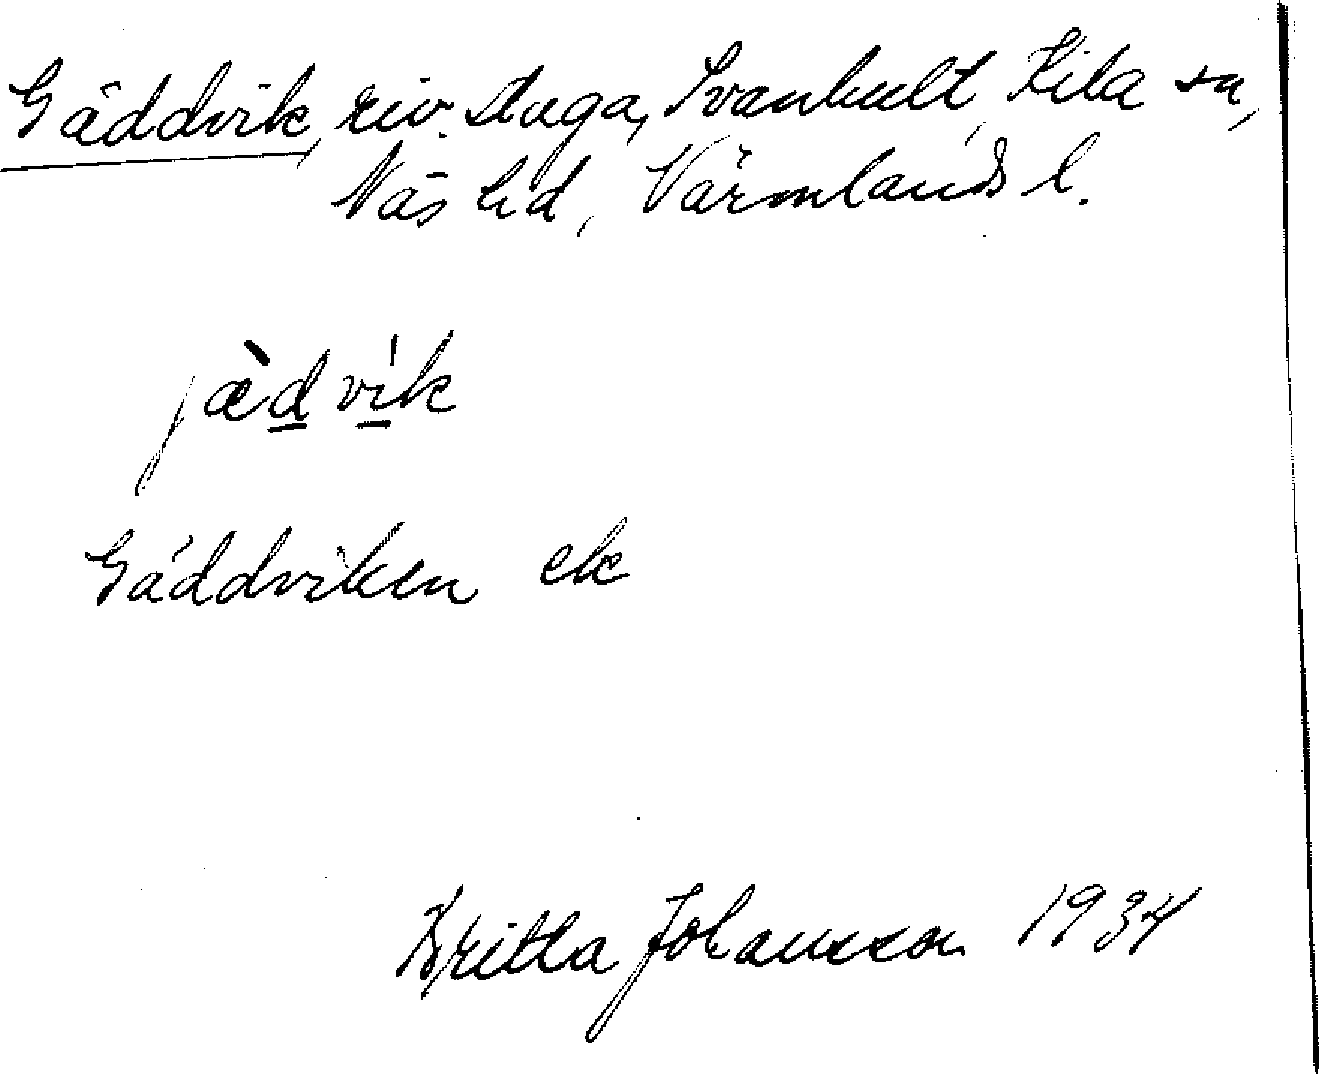 Gäddvik, riv. stuga, Svanhult, Kila sn,
Näs hd, Värmlands l.
jæ̀dvík
Gäddviken ek
Britta Johansson 1934